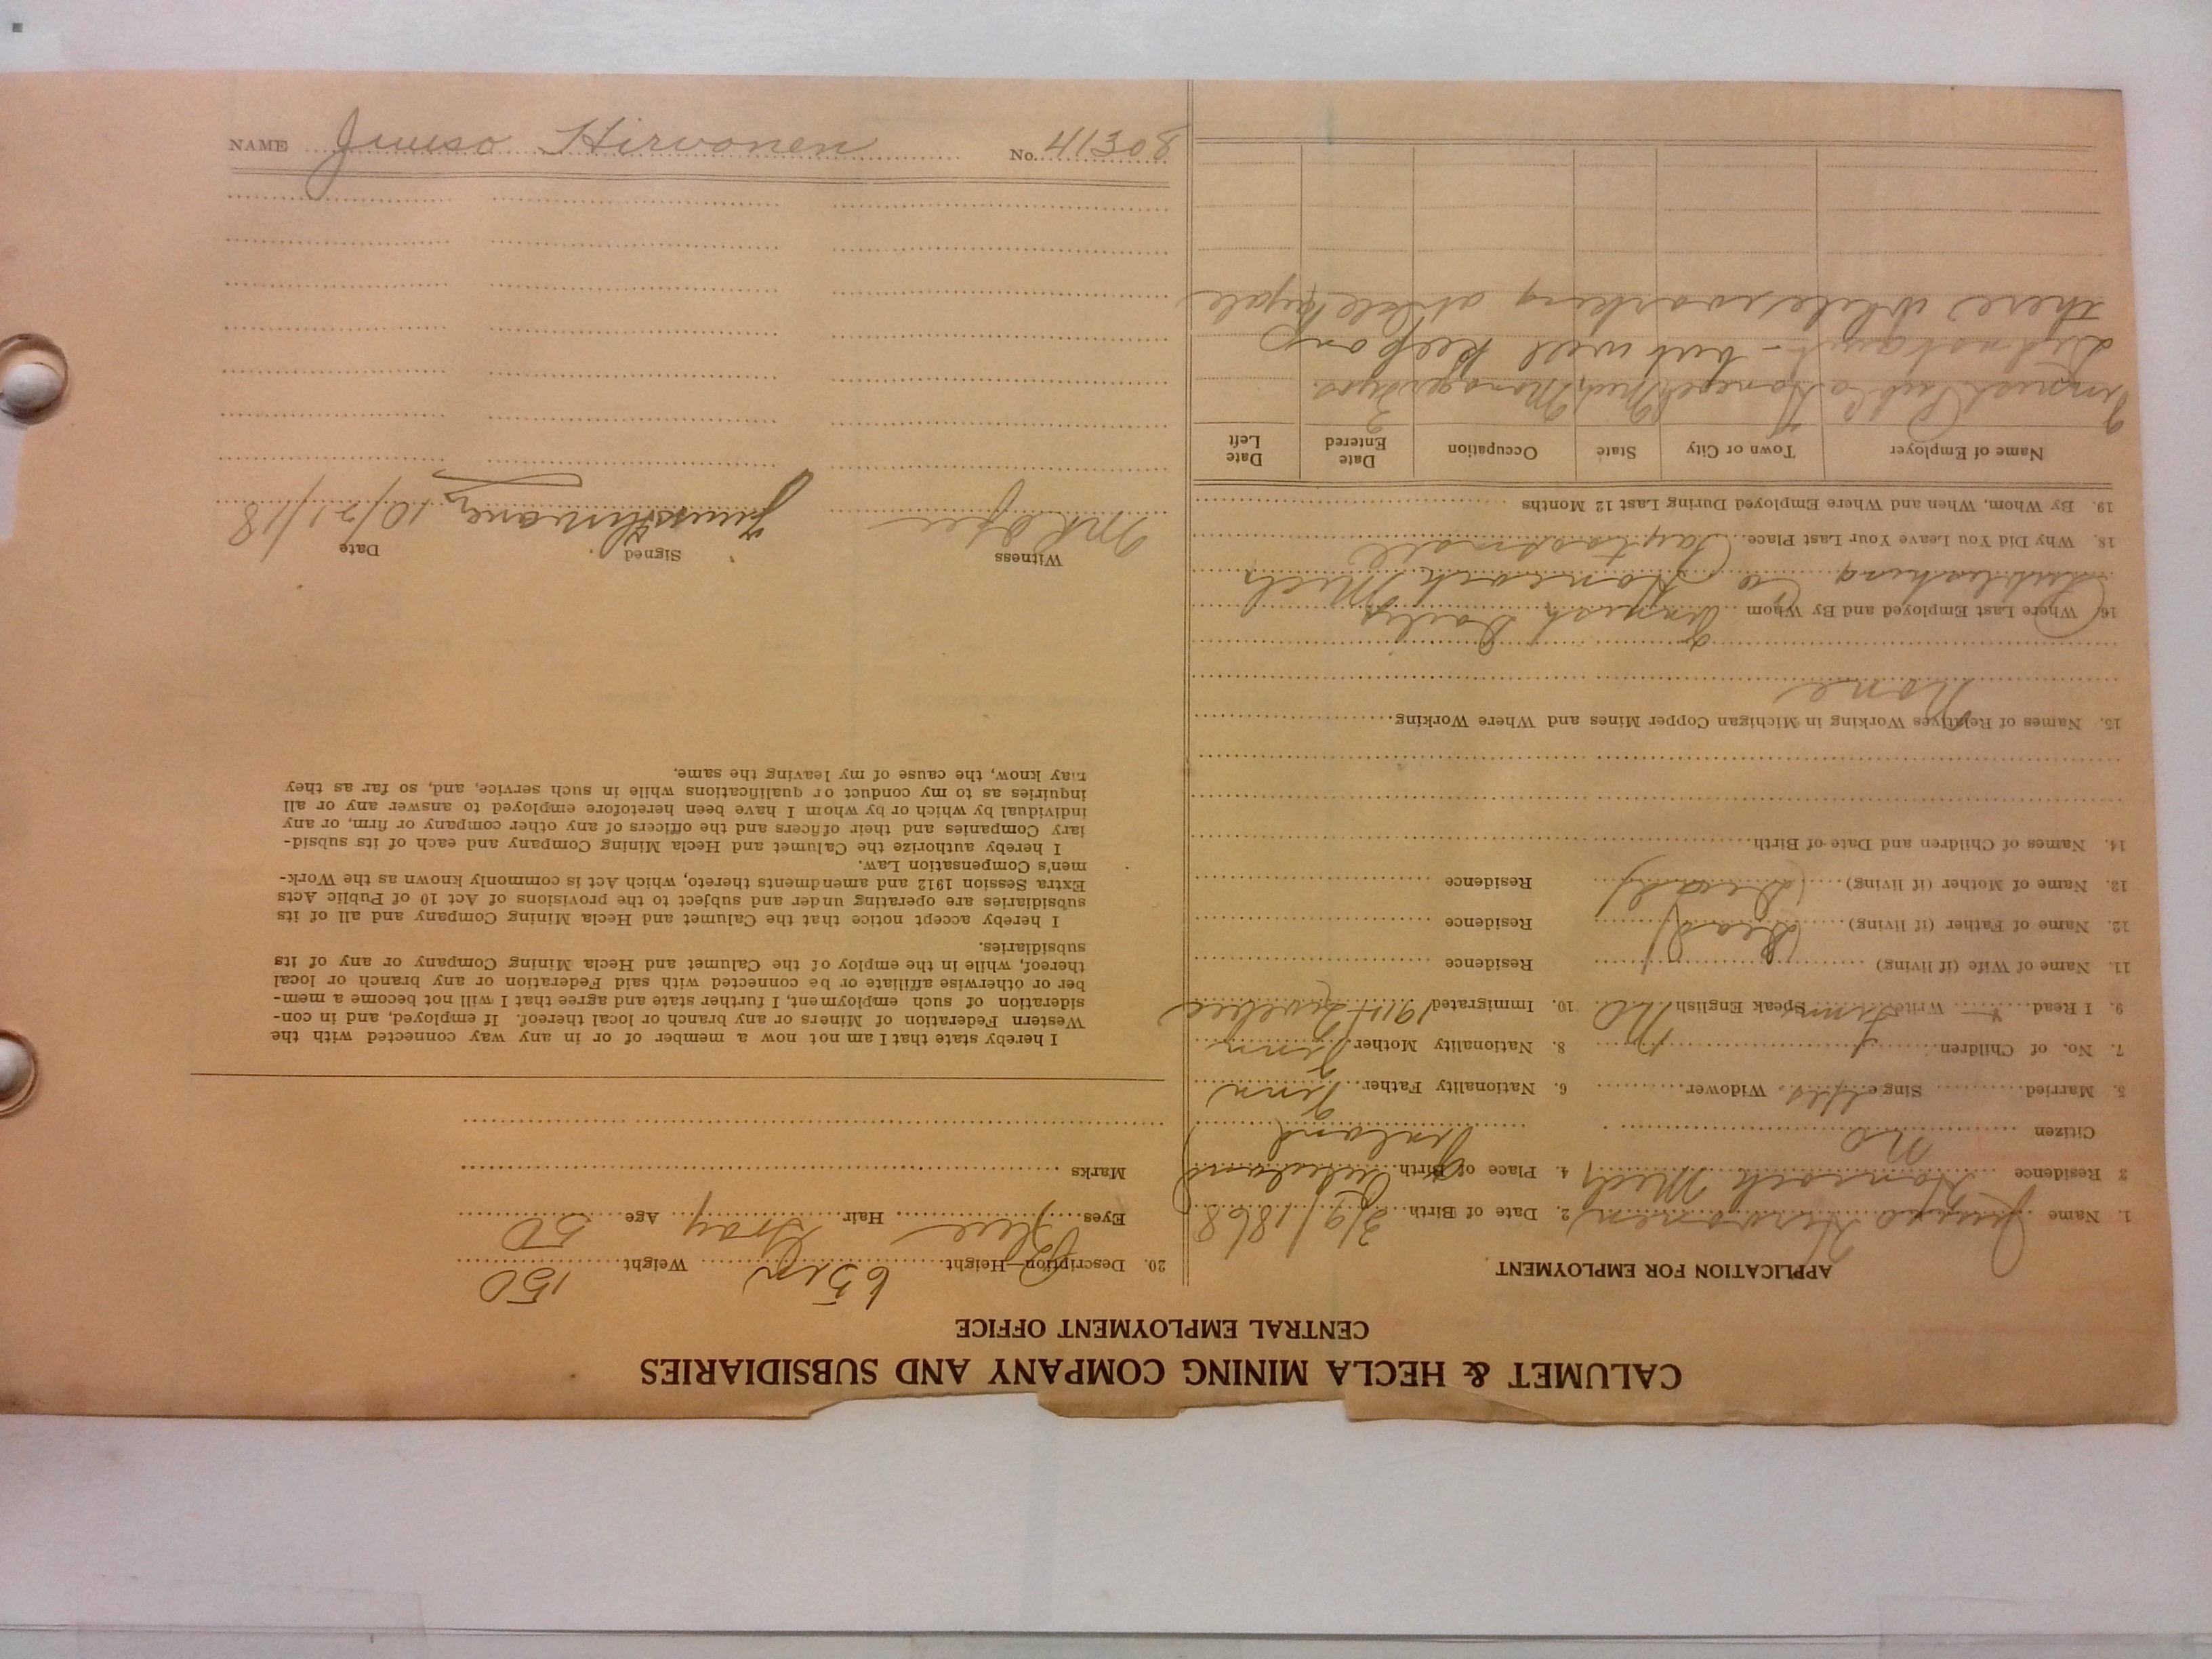 CALUMET & HECLA MINING COMPANY AND SUBSIDIARIES
CENTRAL EMPLOYMENT OFFICE
APPLICATION FOR EMPLOYMENT
1. Name Juuso Hirvonen 2. Date of Birth 3/9/1868
3 Residence Hancock Mich 4. Place of Birth
Citizen No Finland
5. Married Single Yes Widower 6. Nationality Father Finn
7. No. of Children 8. Nationality Mother Finn
9. I Read Write Finn Speak English No 10. Immigrated 1911
11. Name of Wife (if living) Residence
12. Name of Father (if living) (Dead) Residence
13. Name of Mother (if living) (Dead) Residence
14. Names of Children and Date of Birth
15. Names of Relatives Working in Michigan Copper Mines and Where Working
None
16. Where Last Employed and By Whom Finnish Daily
Publishing Co Hancock Mich
18. Why Did You Leave Your Last Place Pay too small
19. By Whom, When and Where Employed During Last 12 Months
Name of Employer Town or City State Occupation Date Entered Date Left
Finnish Pub Co Mich Manager
Did not quit - but will keep on
there while working at
20. Description—Height 65 in Weight 150
Eyes Blue Hair Gray Age 50
Marks
I hereby state that I am not now a member of or in any way connected with the
Western Federation of Miners or any branch or local thereof. If employed, and in con-
sideration of such employment, I further state and agree that I will not become a mem-
ber or otherwise affiliate or be connected with said Federation or any branch or local
thereof, while in the employ of the Calumet and Hecla Mining Company or any of its
subsidiaries.
I hereby accept notice that the Calumet and Hecla Mining Company and all of its
subsidiaries are operating under and subject to the provisions of Act 10 of Public Acts
Extra Session 1912 and amendments thereto, which Act is commonly known as the Work-
men's Compensation Law.
I hereby authorize the Calumet and Hecla Mining Company and each of its subsid-
iary Companies and their officers and the officers of any other company or firm, or any
individual by which or by whom I have been heretofore employed to answer any or all
inquiries as to my conduct or qualifications while in such service, and, so far as they
may know, the cause of my leaving the same.
Witness Signed Date
Juuso Hirvonen 10/21/18
NAME Juuso Hirvonen No. 41308